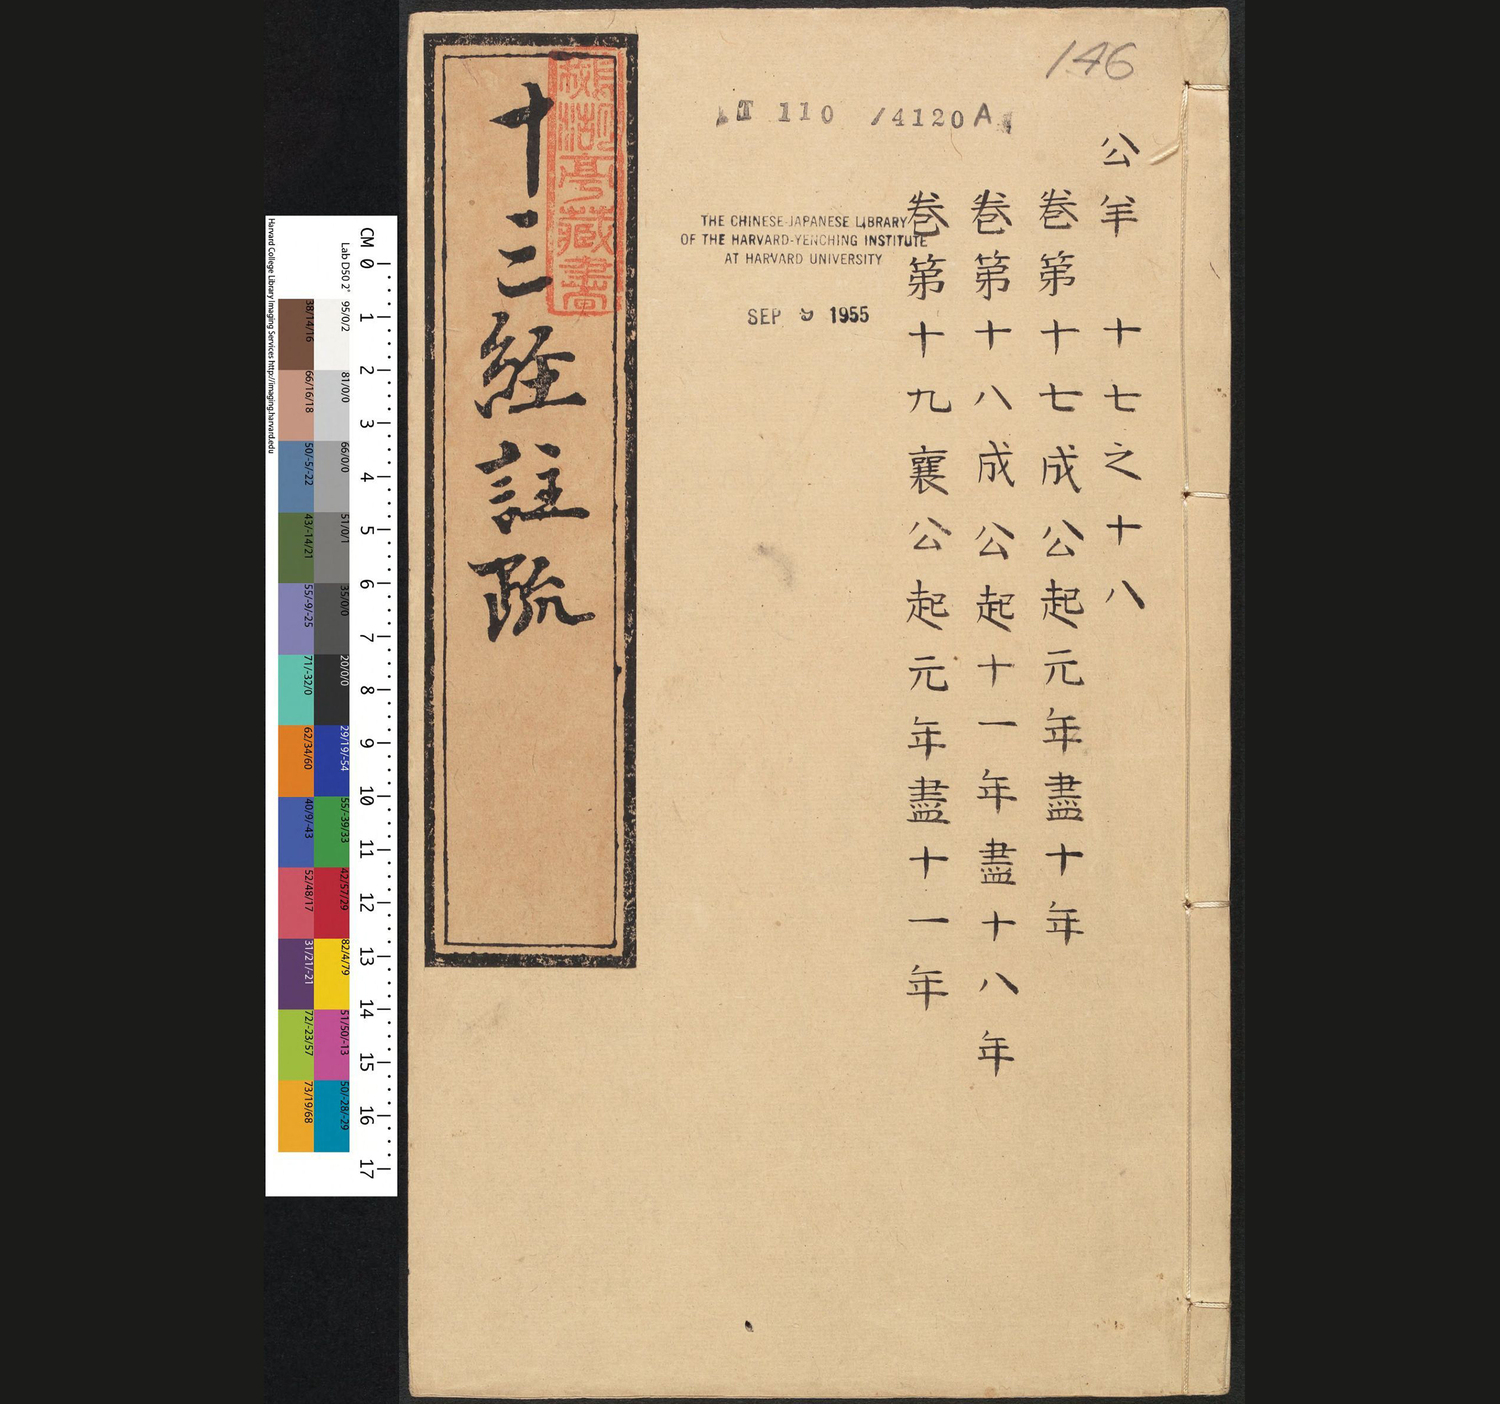 146
T 110 /4120A
公羊 十七之十八
卷第十七成公起元年盡十年
卷第十八成公起十一年盡十八年
卷第十九襄公起元年盡十一年
THE CHINESE-JAPANESE LIBRARY
OF THE HARVARD-YENCHING INSTITUTE
AT HARVARD UNIVERSITY
SEP 9 1955
十三經註疏
亭藏書
CM 0 1 2 3 4 5 6 7 8 9 10 11 12 13 14 15 16 17
Lab D50 2° 95/0/2 81/0/0 66/0/0 51/0/1 35/0/0 20/0/0 29/19/-54 55/-39/33 42/57/29 82/4/79 51/50/-13 50/-28/-29
38/14/16 66/16/18 50/-5/-22 43/-14/21 55/-9/-25 71/-32/0 62/34/60 40/9/-43 52/48/17 31/21/-21 72/-23/57 73/19/68
Harvard College Library Imaging Services http://imaging.harvard.edu